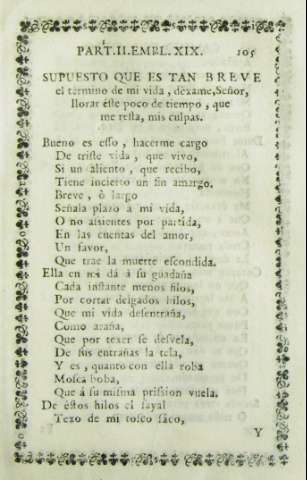 PART.II.EMBL.XIX. 105
SUPUESTO QUE ES TAN BREVE
el termino de mi vida , dèxame, Señor,
llorar éste poco de tiempo , que
me resta, mis culpas.
Bueno es esso , hacerme cargo
De triste vida , que vivo,
Si un aliento , que recibo,
Tiene incierto un fin amargo.
Breve , ò largo
Señala plazo à mi vida,
O no assientes por partida,
En las cuentas del amor,
Un favor,
Que trae la muerte escondida.
Ella en mi dá á su guadaña
Cada instante menos filos,
Por cortar delgados hilos,
Que mi vida desentraña,
Como araña,
Que por texer se desvela,
De sus entrañas la tela,
Y es , quanto con ella roba
Mosca boba,
Que á su misma prission vuela.
De éstos hilos el sayal
Texo de mi tosco saco,
Y